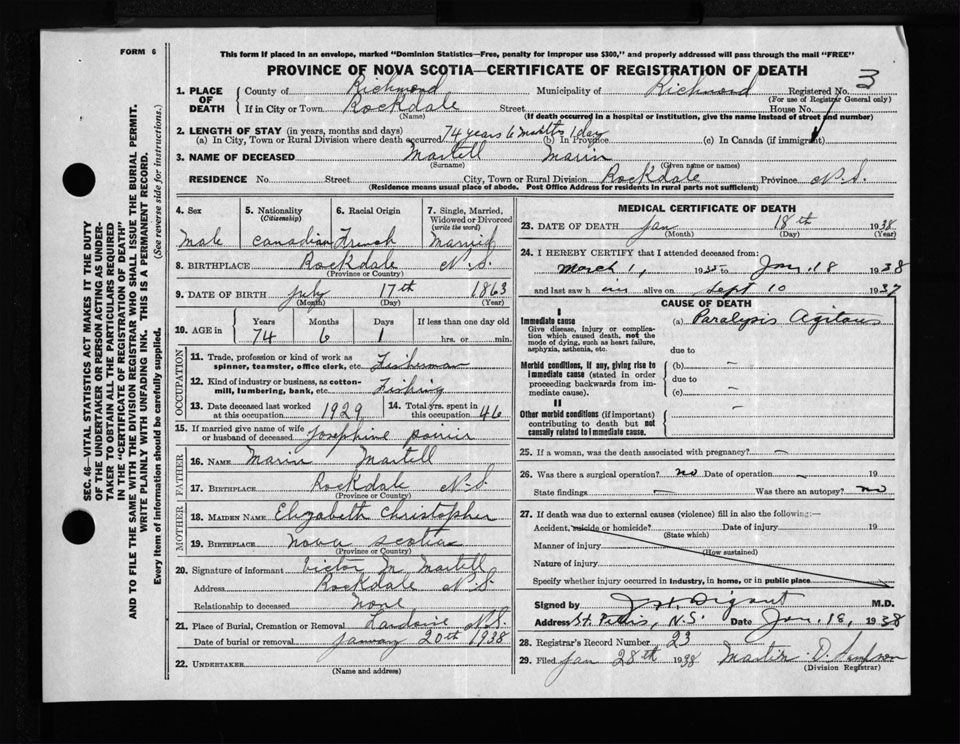 FORM 6
This form if placed in an envelope, marked "Dominion Statistics—Free, penalty for improper use $300," and properly addressed will pass through the mail "FREE"
PROVINCE OF NOVA SCOTIA—CERTIFICATE OF REGISTRATION OF DEATH
3
1. PLACE OF DEATH
County of Richmond Municipality of Richmond Registered No.
(For use of Registrar General only)
If in City or Town Rockdale Street House No.
(Name) (If death occurred in a hospital or institution, give the name instead of street and number)
2. LENGTH OF STAY (in years, months and days)
(a) In City, Town or Rural Division where death occurred 74 years 6 months 1 day (b) In Province (c) In Canada (if immigrant)
3. NAME OF DECEASED Martell Marin
(Surname) (Given name or names)
RESIDENCE No. Street City, Town or Rural Division Rockdale Province N.S.
(Residence means usual place of abode. Post Office Address for residents in rural parts not sufficient)
4. Sex 5. Nationality (Citizenship) 6. Racial Origin 7. Single, Married, Widowed or Divorced (write the word)
Male Canadian French Married
8. BIRTHPLACE Rockdale N.S.
(Province or County)
9. DATE OF BIRTH July 17th 1863
(Month) (Day) (Year)
10. AGE in Years Months Days If less than one day old
74 6 1 hrs. or min.
OCCUPATION
11. Trade, profession or kind of work as spinner, teamster, office clerk, etc. Fisherman
12. Kind of industry or business, as cotton-mill, lumbering, bank, etc. Fishing
13. Date deceased last worked at this occupation 1929 14. Total yrs. spent in this occupation 46
15. If married give name of wife or husband of deceased Josephine Poirier
FATHER
16. NAME Marin Martell
17. BIRTHPLACE Rockdale N.S.
(Province or Country)
MOTHER
18. MAIDEN NAME Elizabeth Christopher
19. BIRTHPLACE Nova Scotia
(Province or Country)
20. Signature of informant Victor M Martell
Address Rockdale N.S.
Relationship to deceased None
21. Place of Burial, Cremation or Removal Lardoise N.S.
Date of burial or removal January 20th 1938
22. UNDERTAKER
(Name and address)
MEDICAL CERTIFICATE OF DEATH
23. DATE OF DEATH Jan 18th 1938
(Month) (Day) (Year)
24. I HEREBY CERTIFY that I attended deceased from:
March 1, 1935 to Jan. 18 1938
and last saw h im alive on Sept 10 1937
CAUSE OF DEATH
I
Immediate cause
Give disease, injury or complication which caused death, not the mode of dying, such as heart failure, asphyxia, asthenia, etc.
(a) Paralysis Agitans
due to
Morbid conditions, if any, giving rise to immediate cause (stated in order proceeding backwards from immediate cause).
(b) –
due to
(c) –
II
Other morbid conditions (if important) contributing to death but not causally related to immediate cause.
–
25. If a woman, was the death associated with pregnancy? –
26. Was there a surgical operation? no Date of operation – 19
State findings – Was there an autopsy? no
27. If death was due to external causes (violence) fill in also the following:
Accident, suicide or homicide? Date of injury 19
(State which)
Manner of injury
(How sustained)
Nature of injury
Specify whether injury occurred in industry, in home, or in public place
Signed by M.D.
Address St. Peters, N.S. Date Jan. 18, 1938
28. Registrar's Record Number 23
29. Filed Jan 28th 1938 D. Sampson
(Division Registrar)
SEC. 46—VITAL STATISTICS ACT MAKES IT THE DUTY
OF THE UNDERTAKER OR PERSON ACTING AS UNDER-
TAKER TO OBTAIN ALL THE PARTICULARS REQUIRED
IN THE "CERTIFICATE OF REGISTRATION OF DEATH"
AND TO FILE THE SAME WITH THE DIVISION REGISTRAR WHO SHALL ISSUE THE BURIAL PERMIT.
WRITE PLAINLY WITH UNFADING INK. THIS IS A PERMANENT RECORD.
Every item of information should be carefully supplied. (See reverse side for instructions.)